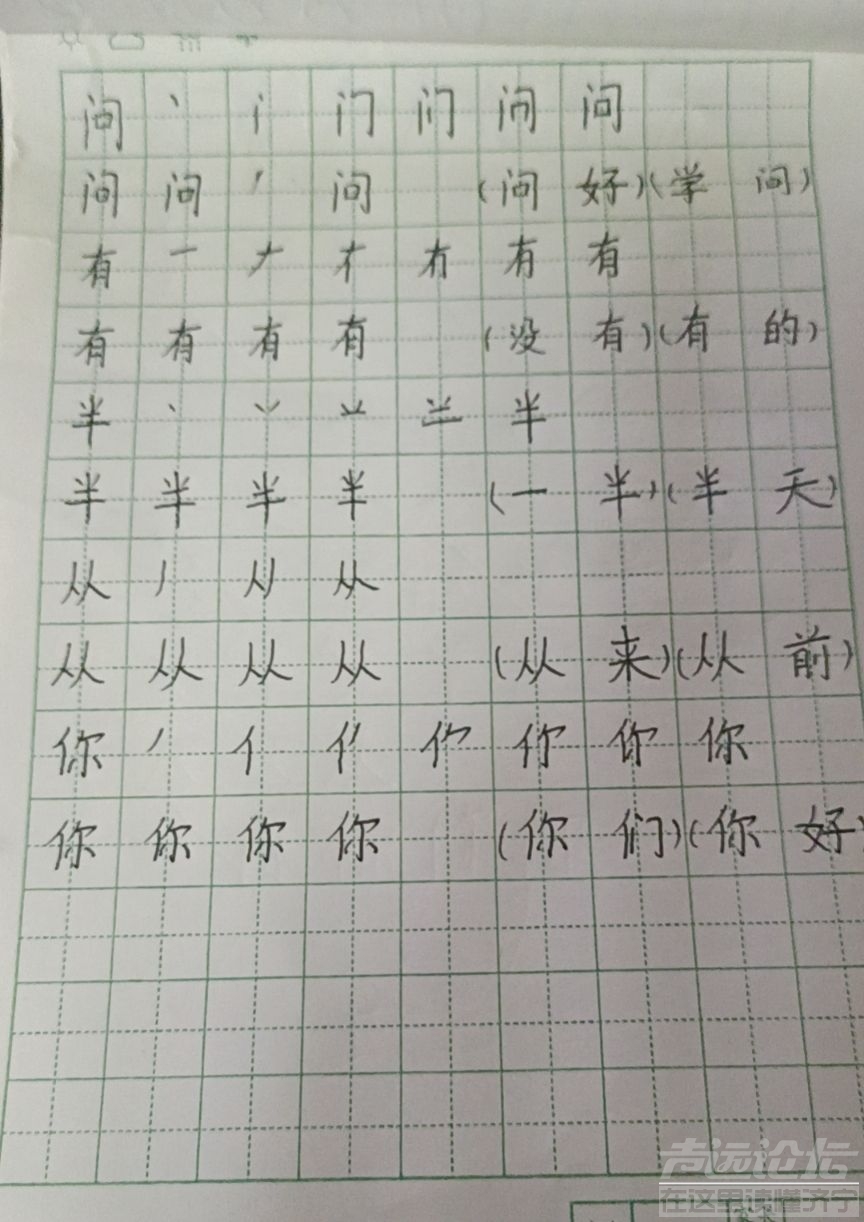 问 丶 门 们 问 问
问 问 丿 问 (问 好)(学 问)
有 一 ナ 有 有
有 有 有 有 (没 有)(有 的)
半 丶 丷 半
半 半 半 半 (一 半)(半 天)
从 丿 从
从 从 从 从 (从 来)(从 前)
你 丿 亻 你 你
你 你 你 你 (你 们)(你 好)
在这里读懂济宁